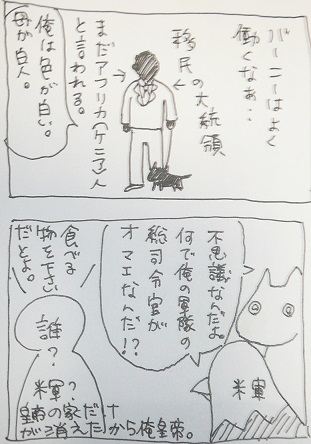 バーニーはよく
働くなぁ‥
移民の大統領
まだアフリカ(ケニア)人
と言われる。
俺は色が白い。
母が白人。
不思議なんだよ。
何で俺の軍隊の
総司令官が
オマエなんだ!?
米軍
食べる
物を下さい
だとよ。
誰?
米軍?
皇帝の家だけ
が消えたから俺皇帝。